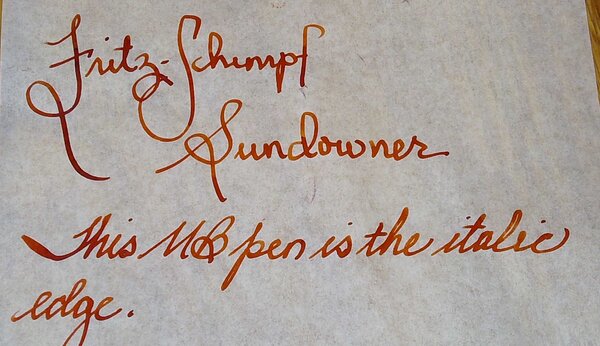 Fritz-Schimpf
Sundowner
This MB pen is the italic
edge.